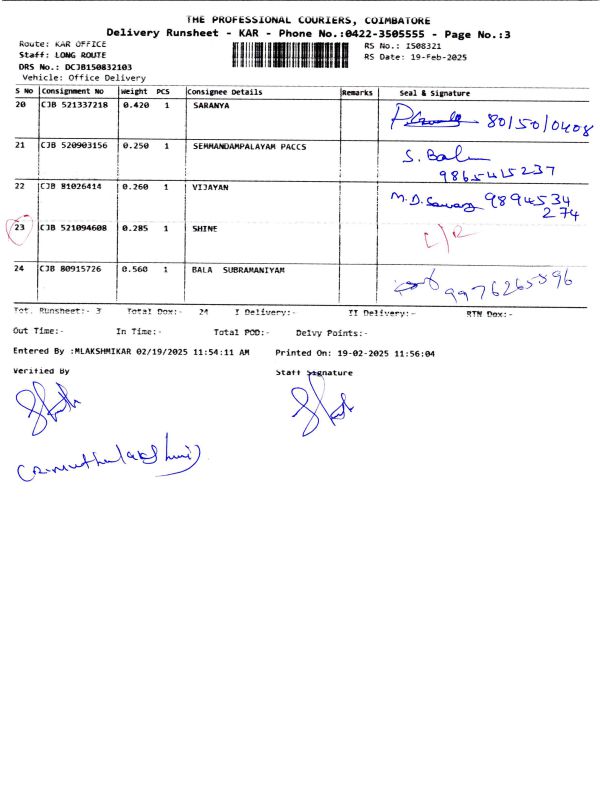 THE PROFESSIONAL COURIERS, COIMBATORE
Delivery Runsheet - KAR - Phone No.:0422-3505555 - Page No.:3
Route: KAR OFFICE RS No.: I508321
Staff: LONG ROUTE RS Date: 19-Feb-2025
DRS No.: DCJB150832103
Vehicle: Office Delivery
S No Consignment No Weight PCS Consignee Details Remarks Seal & Signature
20 CJB 521337218 0.420 1 SARANYA
80/50/0408
21 CJB 520903156 0.250 1 SEMMANDAMPALAYAM PACCS
9865415237
22 CJB 81026414 0.260 1 VIJAYAN
9894534
274
23 CJB 521094608 0.285 1 SHINE
24 CJB 80915726 0.560 1 BALA SUBRAMANIYAM
9976265896
Tot. Runsheet:- 3 Total Dox:- 24 I Delivery:- II Delivery:- RTN Dox:-
Out Time:- In Time:- Total POD:- Delvy Points:-
Entered By :MLAKSHMIKAR 02/19/2025 11:54:11 AM Printed On: 19-02-2025 11:56:04
Verified By Staff Signature